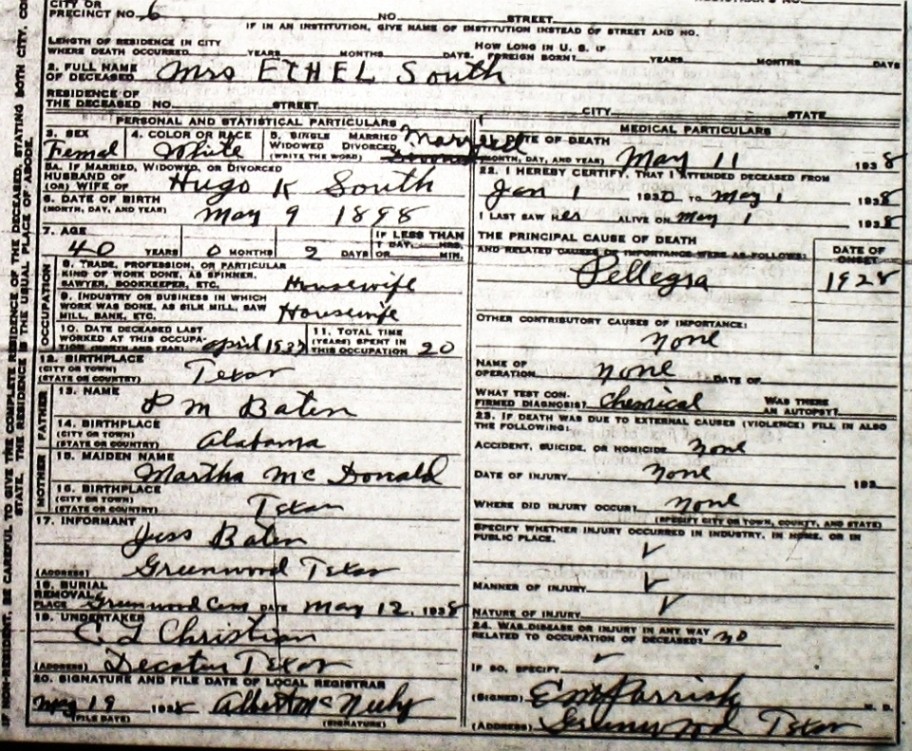 CITY OR
PRECINCT NO. 6 NO. STREET.
IF IN AN INSTITUTION, GIVE NAME OF INSTITUTION INSTEAD OF STREET AND NO.
LENGTH OF RESIDENCE IN CITY WHERE DEATH OCCURRED YEARS MONTHS DAYS. HOW LONG IN U. S. IF FOREIGN BORN? YEARS MONTHS DAYS
2. FULL NAME OF DECEASED Mrs ETHEL South
RESIDENCE OF THE DECEASED NO. STREET CITY STATE
PERSONAL AND STATISTICAL PARTICULARS
3. SEX Femal 4. COLOR OR RACE White 5. SINGLE MARRIED WIDOWED DIVORCED (WRITE THE WORD) Married
5A. IF MARRIED, WIDOWED, OR DIVORCED
HUSBAND OF (OR) WIFE OF Hugo K South
6. DATE OF BIRTH (MONTH, DAY, AND YEAR) May 9 1898
7. AGE 40 YEARS 0 MONTHS 2 DAYS IF LESS THAN 1 DAY, HRS. OR MIN.
OCCUPATION
8. TRADE, PROFESSION, OR PARTICULAR KIND OF WORK DONE, AS SPINNER, SAWYER, BOOKKEEPER, ETC. Housewife
9. INDUSTRY OR BUSINESS IN WHICH WORK WAS DONE, AS SILK MILL, SAW MILL, BANK, ETC. Housewife
10. DATE DECEASED LAST WORKED AT THIS OCCUPATION (MONTH AND YEAR) April 1937 11. TOTAL TIME (YEARS) SPENT IN THIS OCCUPATION 20
12. BIRTHPLACE (CITY OR TOWN) (STATE OR COUNTRY) Texas
FATHER
13. NAME P M Baten
14. BIRTHPLACE (CITY OR TOWN) (STATE OR COUNTRY) Alabama
MOTHER
15. MAIDEN NAME Martha Mc Donald
16. BIRTHPLACE (CITY OR TOWN) (STATE OR COUNTRY) Texas
17. INFORMANT Juss Baten
(ADDRESS) Greenwood Texas
18. BURIAL REMOVAL PLACE Greenwood Cem DATE May 12, 1938
19. UNDERTAKER C L Christian
(ADDRESS) Decatur Texas
20. SIGNATURE AND FILE DATE OF LOCAL REGISTRAR
May 19 1938 Albert McNeely
(FILE DATE) (SIGNATURE)
MEDICAL PARTICULARS
DATE OF DEATH (MONTH, DAY, AND YEAR) May 11 1938
22. I HEREBY CERTIFY, THAT I ATTENDED DECEASED FROM
Jan 1 1930 TO May 1 1938
I LAST SAW Her ALIVE ON May 1 1938
THE PRINCIPAL CAUSE OF DEATH AND RELATED CAUSES OF IMPORTANCE WERE AS FOLLOWS: DATE OF ONSET
Pellegra 1928
OTHER CONTRIBUTORY CAUSES OF IMPORTANCE:
None
NAME OF OPERATION None DATE OF
WHAT TEST CONFIRMED DIAGNOSIS? Chemical WAS THERE AN AUTOPSY?
23. IF DEATH WAS DUE TO EXTERNAL CAUSES (VIOLENCE) FILL IN ALSO THE FOLLOWING:
ACCIDENT, SUICIDE, OR HOMICIDE None
DATE OF INJURY None 193
WHERE DID INJURY OCCUR? None
(SPECIFY CITY OR TOWN, COUNTY, AND STATE)
SPECIFY WHETHER INJURY OCCURRED IN INDUSTRY, IN HOME, OR IN PUBLIC PLACE.
MANNER OF INJURY
NATURE OF INJURY
24. WAS DISEASE OR INJURY IN ANY WAY RELATED TO OCCUPATION OF DECEASED? no
IF SO, SPECIFY
(SIGNED) E M Parrish M. D.
(ADDRESS) Greenwood Texas